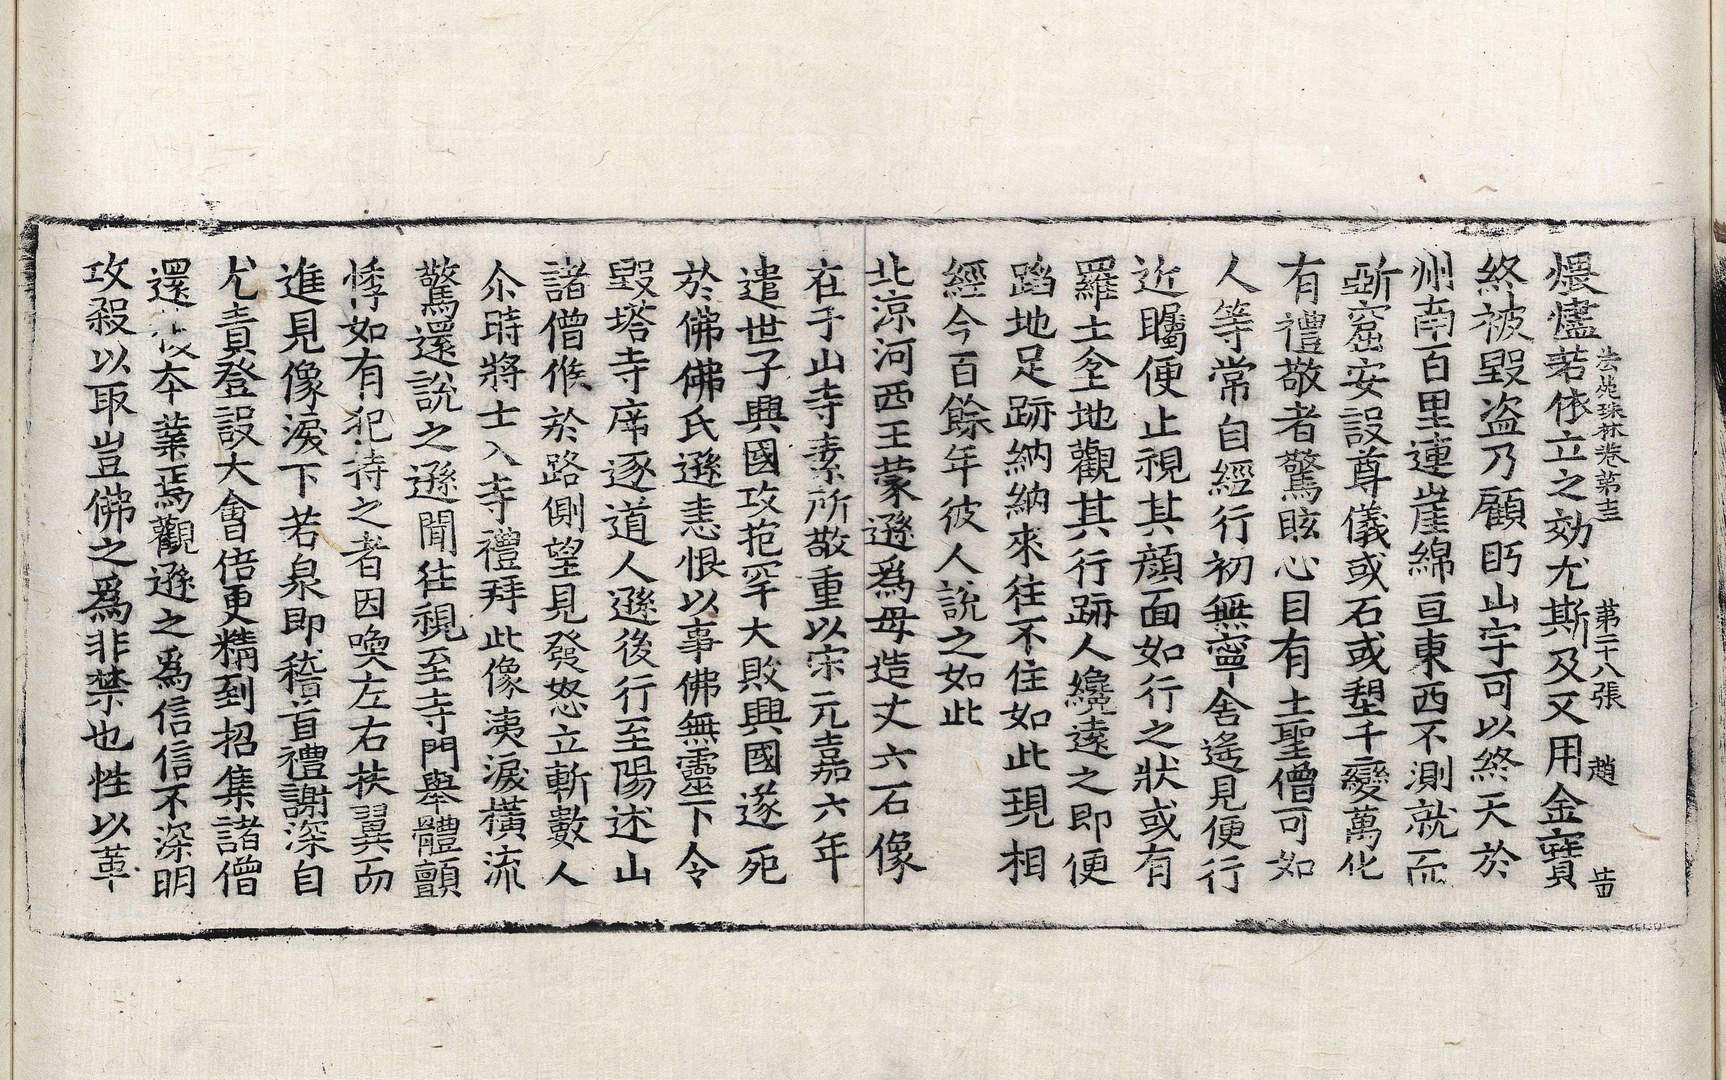 煨燼若依立之効尤斯及又用金寶
法苑珠林卷第十三 第二十八張 趙
終被毀盗乃顧眄山宇可以終天於
州南百里連崖綿亘東西不測就而
斲窟安設尊儀或石或塑千變萬化
有禮敬者驚眩心目有土聖僧可如
人等常自經行初無寧舍遙見便行
近矚便止視其顔面如行之狀或有
羅土坌地觀其行跡人纔遠之即便
蹈地足跡納納來往不住如此現相
經今百餘年彼人說之如此
北涼河西王蒙遜爲母造丈六石像
在于山寺素所敬重以宋元嘉六年
遣世子興國攻枹罕大敗興國遂死
於佛佛氏遜恚恨以事佛無靈下令
毀塔寺庍逐道人遜後行至陽述山
諸僧候於路側望見發怒立斬數人
尒時將士入寺禮拜此像洟淚橫流
驚還說之遜聞往視至寺門舉體顫
悸如有犯持之者因喚左右扶翼而
進見像淚下若泉即稽首禮謝深自
尤責登設大會倍更精到招集諸僧
還 本業焉觀遜之爲信信不深明
攻殺以取豈佛之爲非禁也性以革